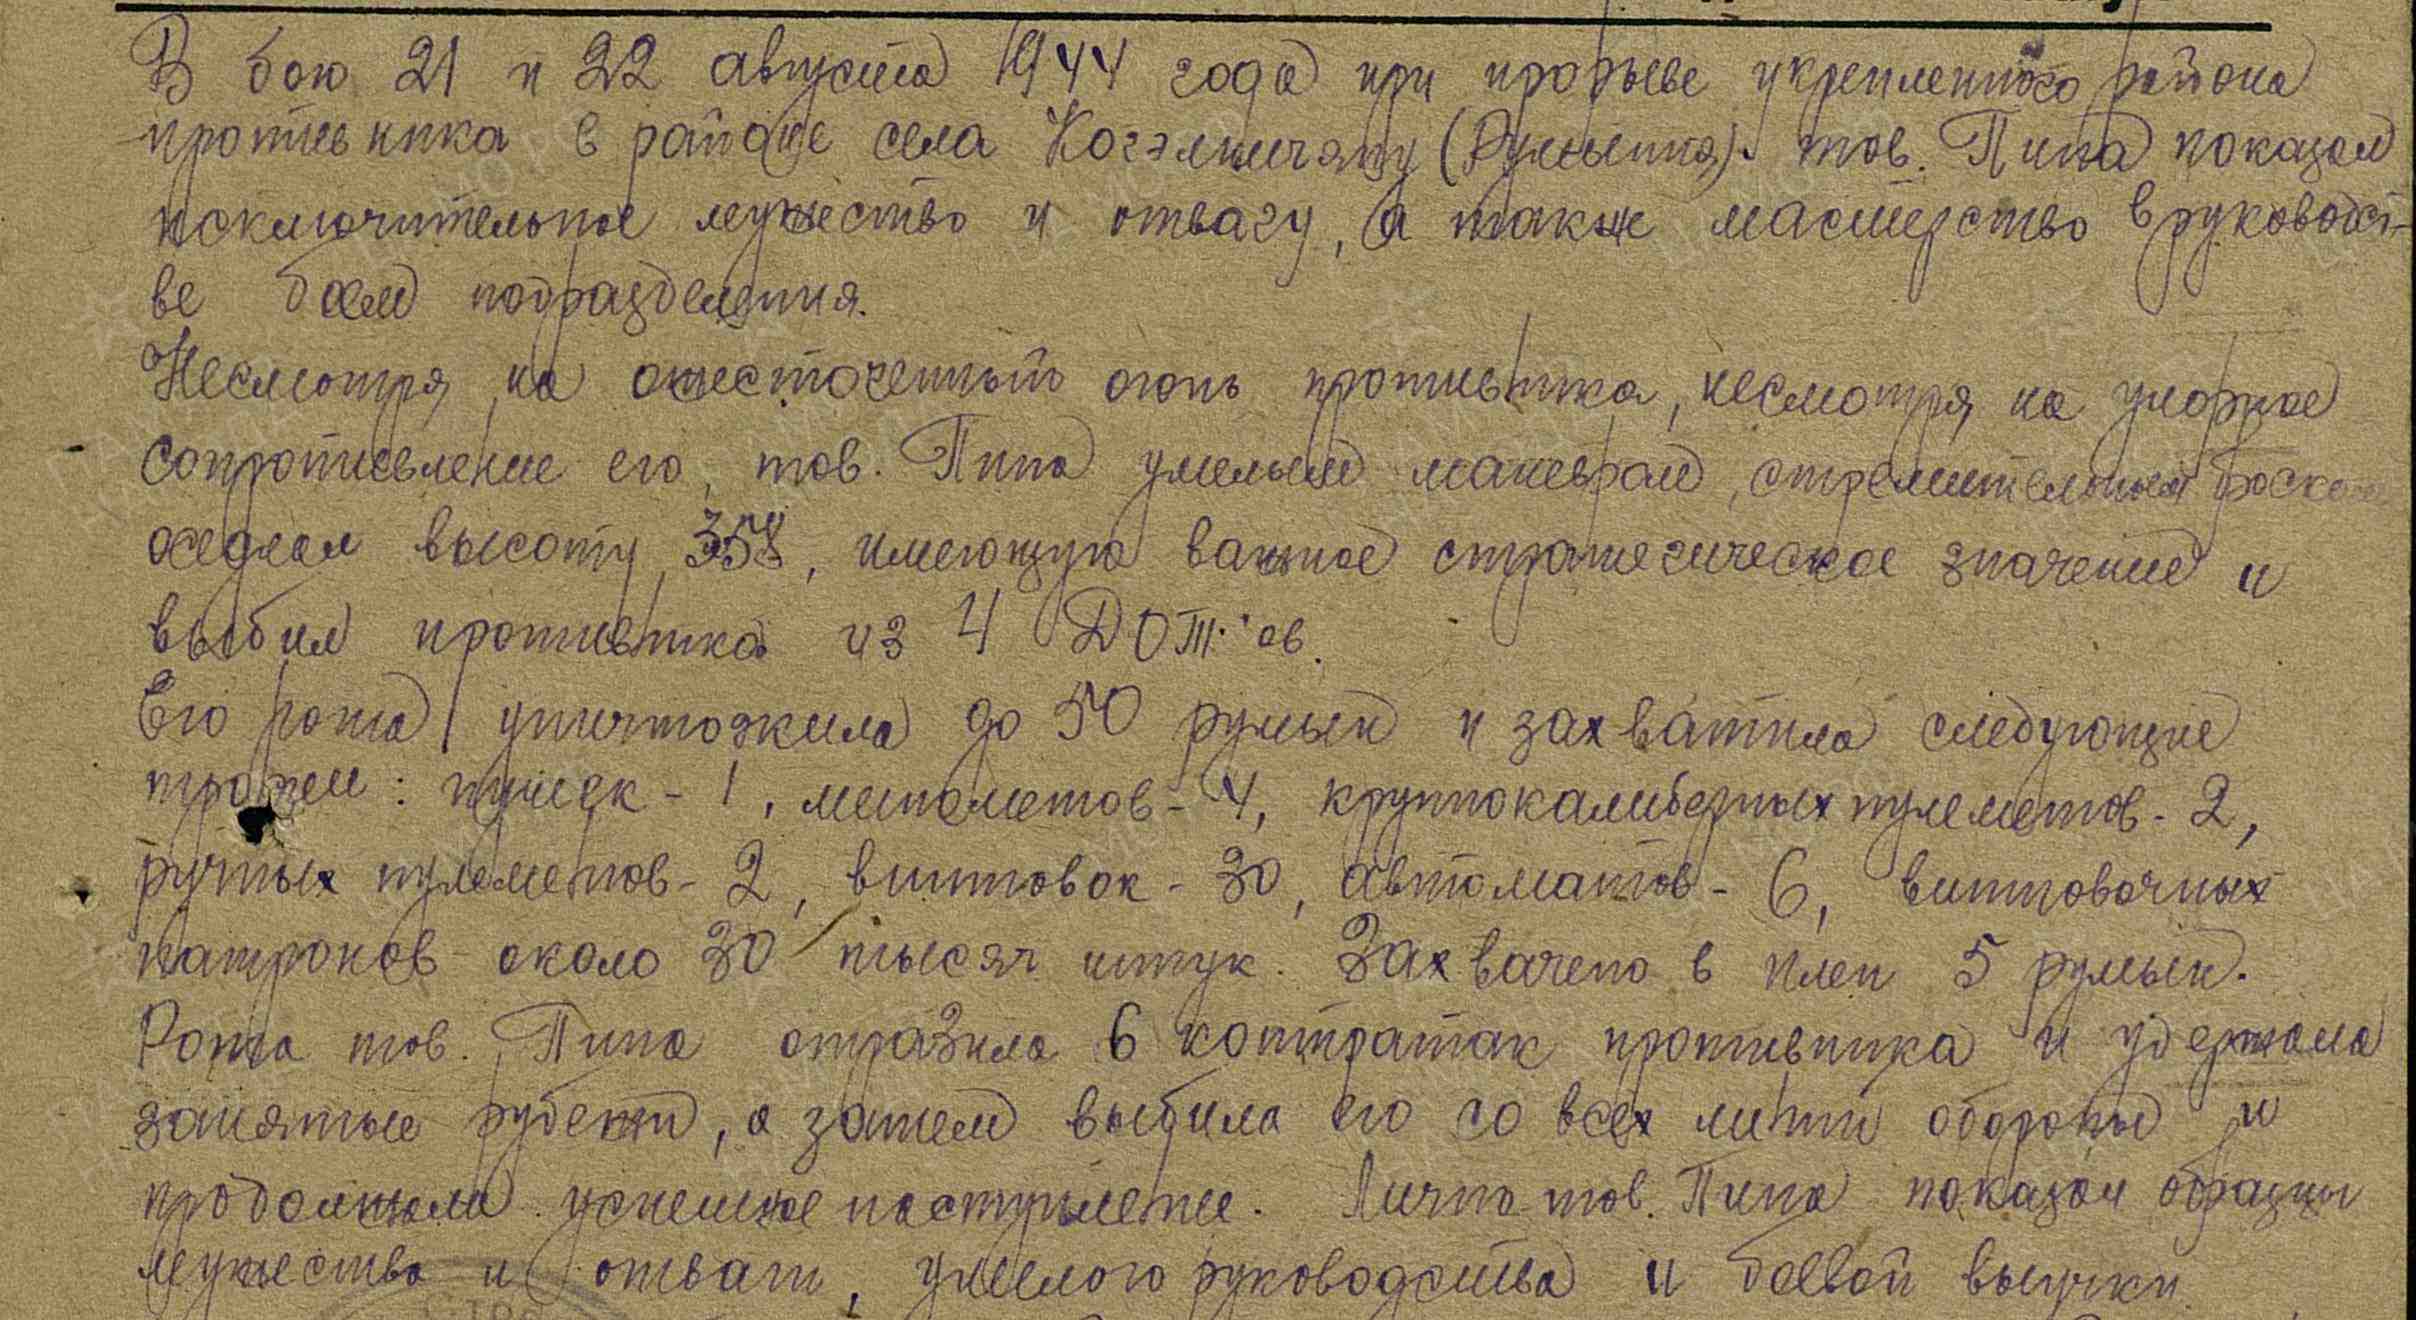 В бою 21 и 22 августа 1944 года при прорыве укрепленного района
противника в районе села Когэлничяну (Румыния). тов. Пипа показал
исключительное мужество и отвагу, а также мастерство в руководст-
ве боем подразделения.
Несмотря на ожесточенный огонь противника, несмотря на упорное
сопротивление его, тов. Пипа умелым маневром, стремительным броском
оседлал высоту 358, имеющую важное стратегическое значение и
выбил противника из 4 ДОТ'ов.
Его рота уничтожила до 50 румын и захватила следующие
трофеи: пушек - 1, минометов - 4, крупнокалиберных пулеметов - 2,
ручных пулеметов - 2, винтовок - 30, автоматов - 6, винтовочных
патронов около 30 тысяч штук. Захвачено в плен 5 румын.
Рота тов. Пипа отразила 6 контратак противника и удержала
занятые рубежи, а затем выбила его со всех линий обороны и
продолжала успешное наступление. Лично тов. Пипа показал образцы
мужества и отваги, умелого руководства и боевой выучки